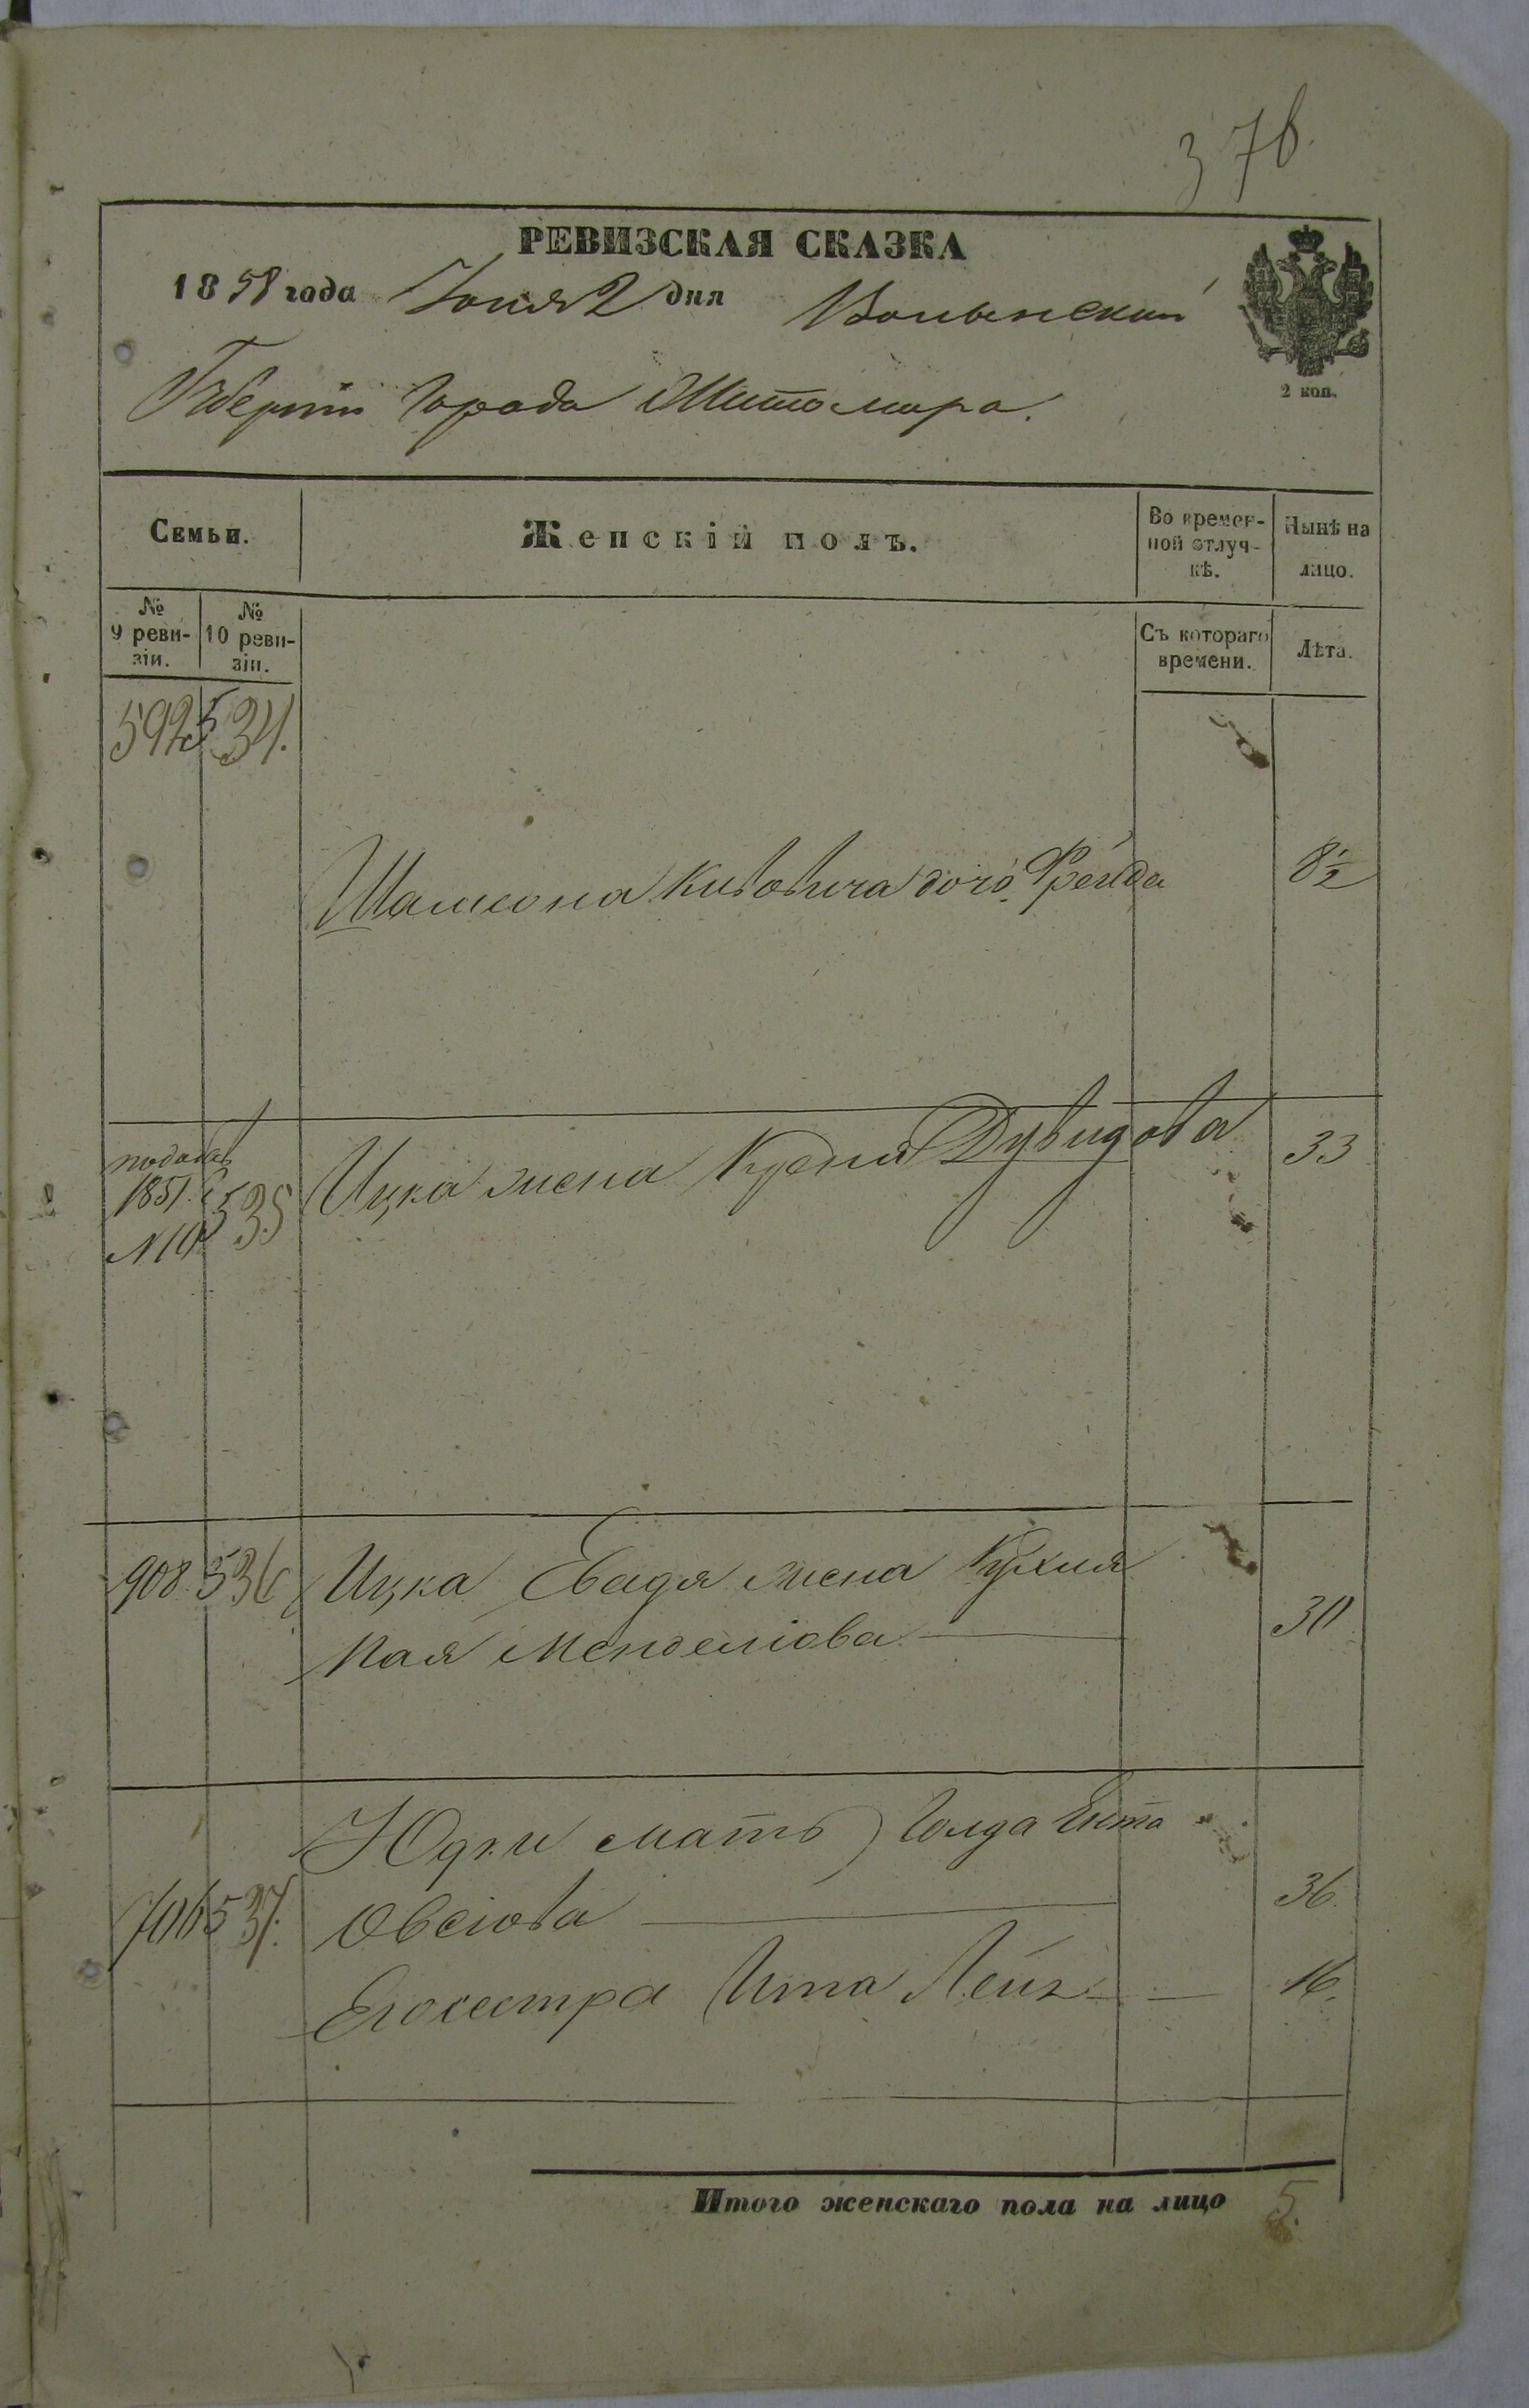 376.
РЕВИЗСКАЯ СКАЗКА
1858 года Іюня 2 дня Волынской
Губерніи Города Житомира.
2 коп.
Семьи.
Женскій полъ.
Во времен-
ной отлуч-
кѣ.
Нынѣ на
лицо.
№
9 реви-
зіи.
№
10 реви-
зіи.
Съ котораго
времени.
Лѣта.
592 534.
Шамсона Кивовича дочь Фрейда 8½
1851.
N10 535
Ицка жена Крейня Дувидова 33
908. 536
Ицка Евадя жена Рухля
Кая Менделіова 30
Юдки мать Голда Ента
706 537.
Овсіова 36.
Его сестра Ита Лея 16.
Итого женскаго пола на лицо 5.